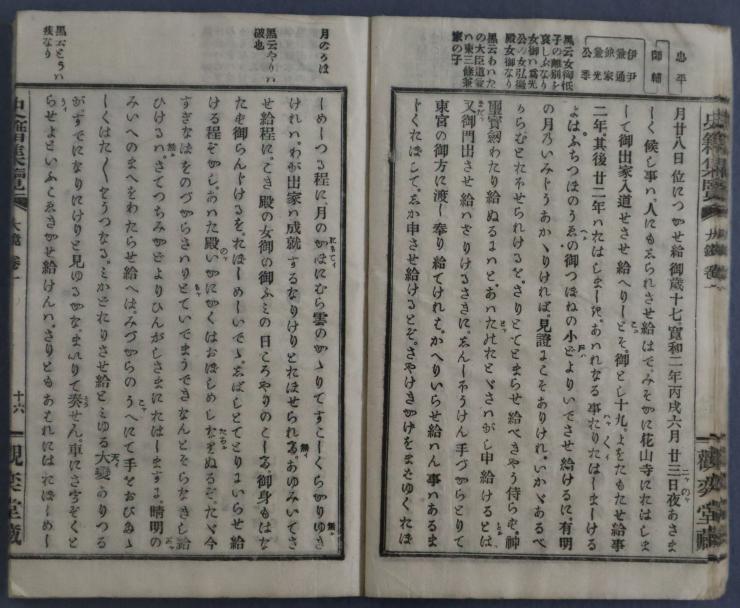 忠平
師輔
伊尹
兼通
兼家
兼光
公季
黒云女御低
子の離別を
哀しふなり
女御ハ為光
公の女弘徽
殿女御なり
黒云あわた
の大臣道兼
ハ東三條兼
家の子
史籍集覧
大鏡 巻一
觀奕堂藏
月廿八日位につかせ給御歳十七寛和二年丙戌六月廿三日夜あさま
しく候し事ハ人にもゑられさせ給はでみそかに花山寺にたはしま
して御出家入道せさせ給へりしとそ御とし十九よをたもたせ給事
二年其後廿二年ハたはしましきあハれなる事たりたはしましける
よはふちつほのうゑの御つほねの小どよりいでさせ給けるに有明
の月のいみじうあかゝりければ見證にこそありけれいかゞあるべ
からむとたほせられけるをさりとてとまらせ給べきやう侍らず神
璽寳劔わたり給ぬるにはとあハたどのたどゝさハがし申給けるとは
又御門出させ給ハさりけるさきにゑんしほうけん手づからとりて
東宮の御方に渡し奉り給てければかへりいらせ給ハん事ハあるま
じくたほしてゑか申させ給けるとそさやけきかけをまさゆくたほ
月のかほ
黒云やりハ
破也
黒云とうハ
疾なり
しめしつる程に月のかほにむら雲のかゝりてすこしくらかりゆき
ければわが出家ハ成就するなりけりとたほせられてあゆみいてさ
せ給程にこき殿の女御の御ふミの日ころやりのこして御身もはな
たず御らんじけるをたほしめしいでゝゑばしとてとりにいらせ給
ける程そかしあハた殿いかにかくはおほしめしなりぬるぞたゞ今
すぎなはをのづからさハりもいでまうできなんとそらなきし給
ひけるハさてつちみかどよりひんがしさまにたはしますに晴明の
みいへのまへをわたらせ給へはみづからのうへにて手をおびたゝ
しくはたくとうつなるミかどたりさせ給とミゆる大變ありつる
がすでになりにけりと見ゆるかなまいりて奏せん車にさうぞくと
らせよといふこゑきかせ給けんハさりともあはれにはたほしめし
史籍集覧
大鏡 巻一
十六
觀奕堂藏